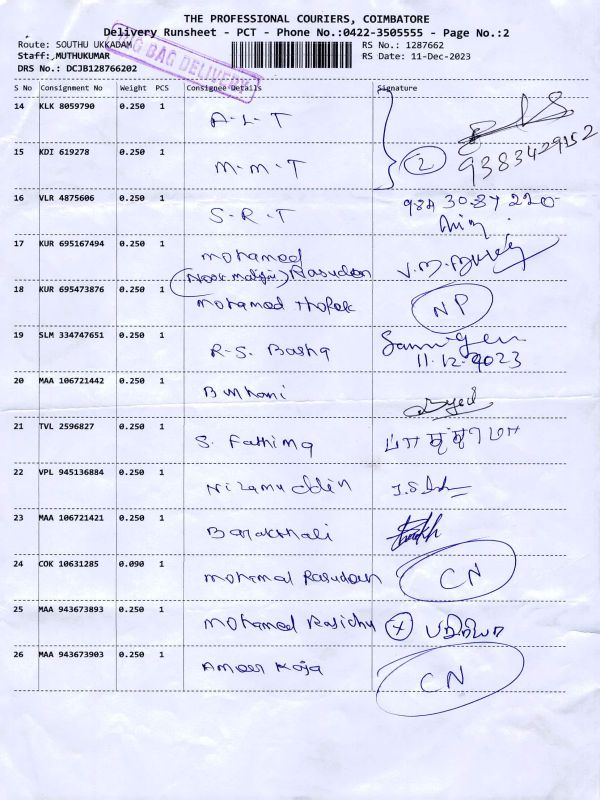 THE PROFESSIONAL COURIERS, COIMBATORE
Delivery Runsheet - PCT - Phone No.:0422-3505555 - Page No.:2
Route: SOUTHU UKKADAM RS No.: 1287662
Staff: MUTHUKUMAR RS Date: 11-Dec-2023
DRS No.: DCJB128766202
NO BAG DELIVERY
S No Consignment No Weight PCS Consignee Details Signature
14 KLK 8059790 0.250 1 A-L-T
15 KDI 619278 0.250 1 M-M-T 2 9383429152
16 VLR 4875606 0.250 1 S-R-T
17 KUR 695167494 0.250 1 mohamed
Rasudeen
18 KUR 695473876 0.250 1 mohamed NP
19 SLM 334747651 0.250 1 R-S. Basha
11.12.2023
20 MAA 106721442 0.250 1 Burhani
21 TVL 2596827 0.250 1 S. Fathima
22 VPL 945136884 0.250 1 Nizamuddin
23 MAA 106721421 0.250 1 Barakathali
24 COK 10631285 0.090 1 CN
25 MAA 943673893 0.250 1 mohamed
26 MAA 943673903 0.250 1 Ameer Koja CN